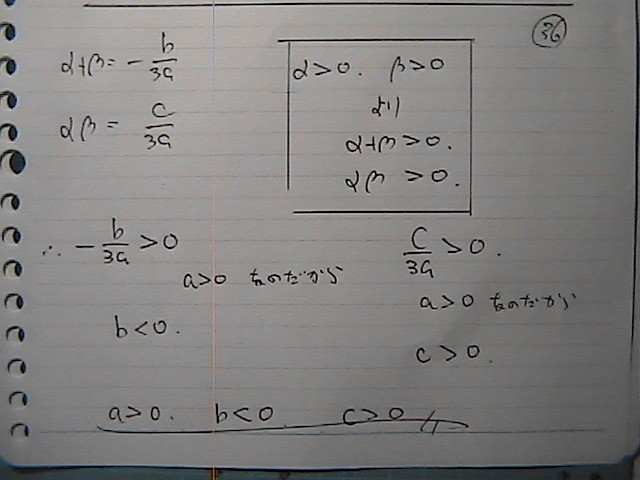 36
α+β = - b/3a
αβ = c/3a
α>0. β>0
より
α+β >0.
αβ >0.
∴ - b/3a >0
a>0 なのだから
b<0.
c/3a >0.
a>0 なのだから
c>0.
a>0. b<0 c>0